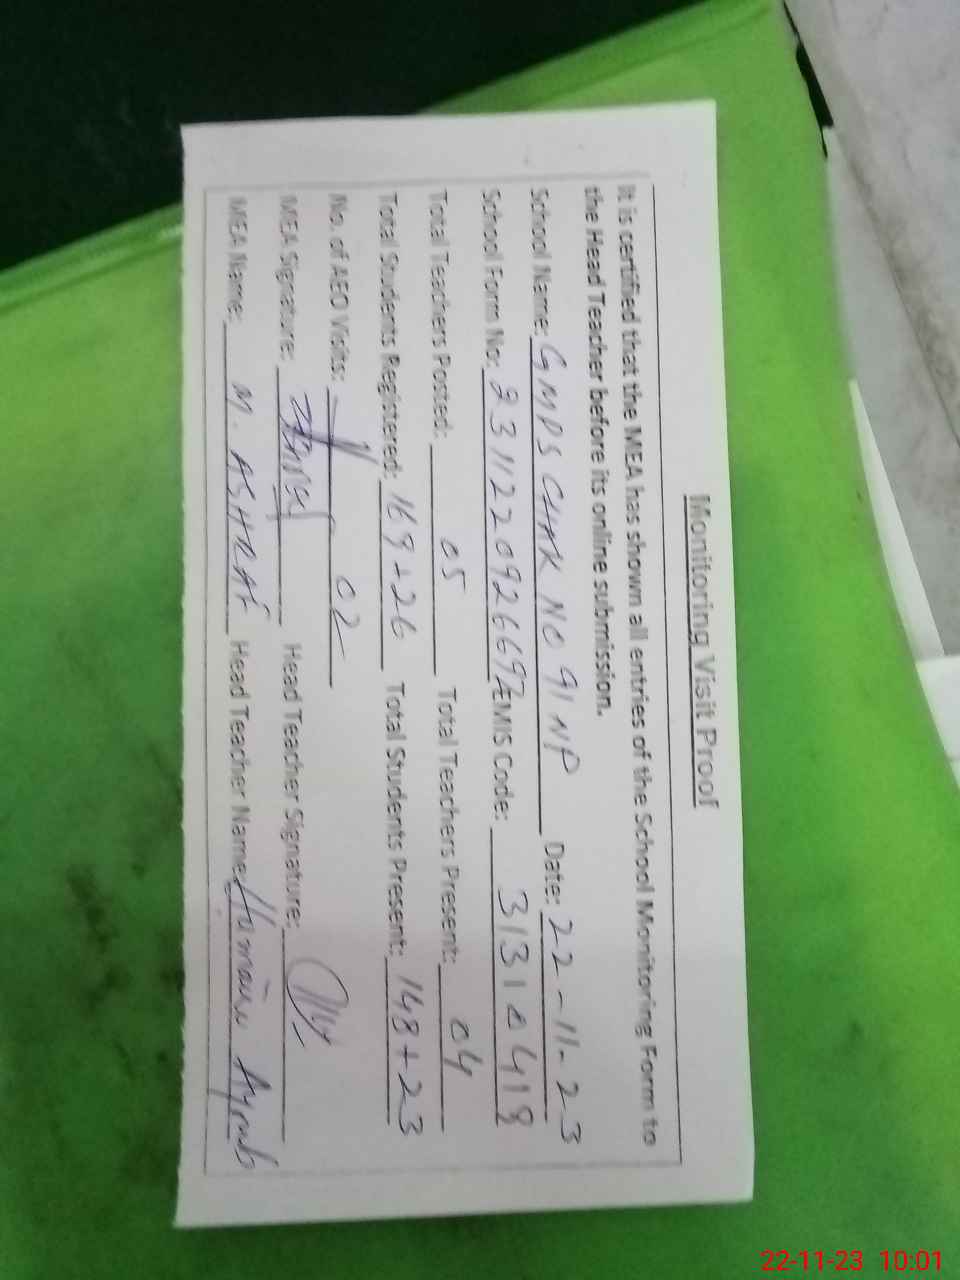 Monitoring Visit Proof
It is certified that the MEA has shown all entries of the School Monitoring Form to
the Head Teacher before its online submission.
School Name: GMPS CHAK NO 91 NP Date: 22-11-23
School Form No: 231122092669 EMIS Code: 31310418
Total Teachers Posted: 05 Total Teachers Present: 04
Total Students Registered: 169+26 Total Students Present: 148+23
No. of AEO Visits: 02
MEA Signature: Head Teacher Signature:
MEA Name: M. ASHRAF Head Teacher Name: Humaira
22-11-23 10:01